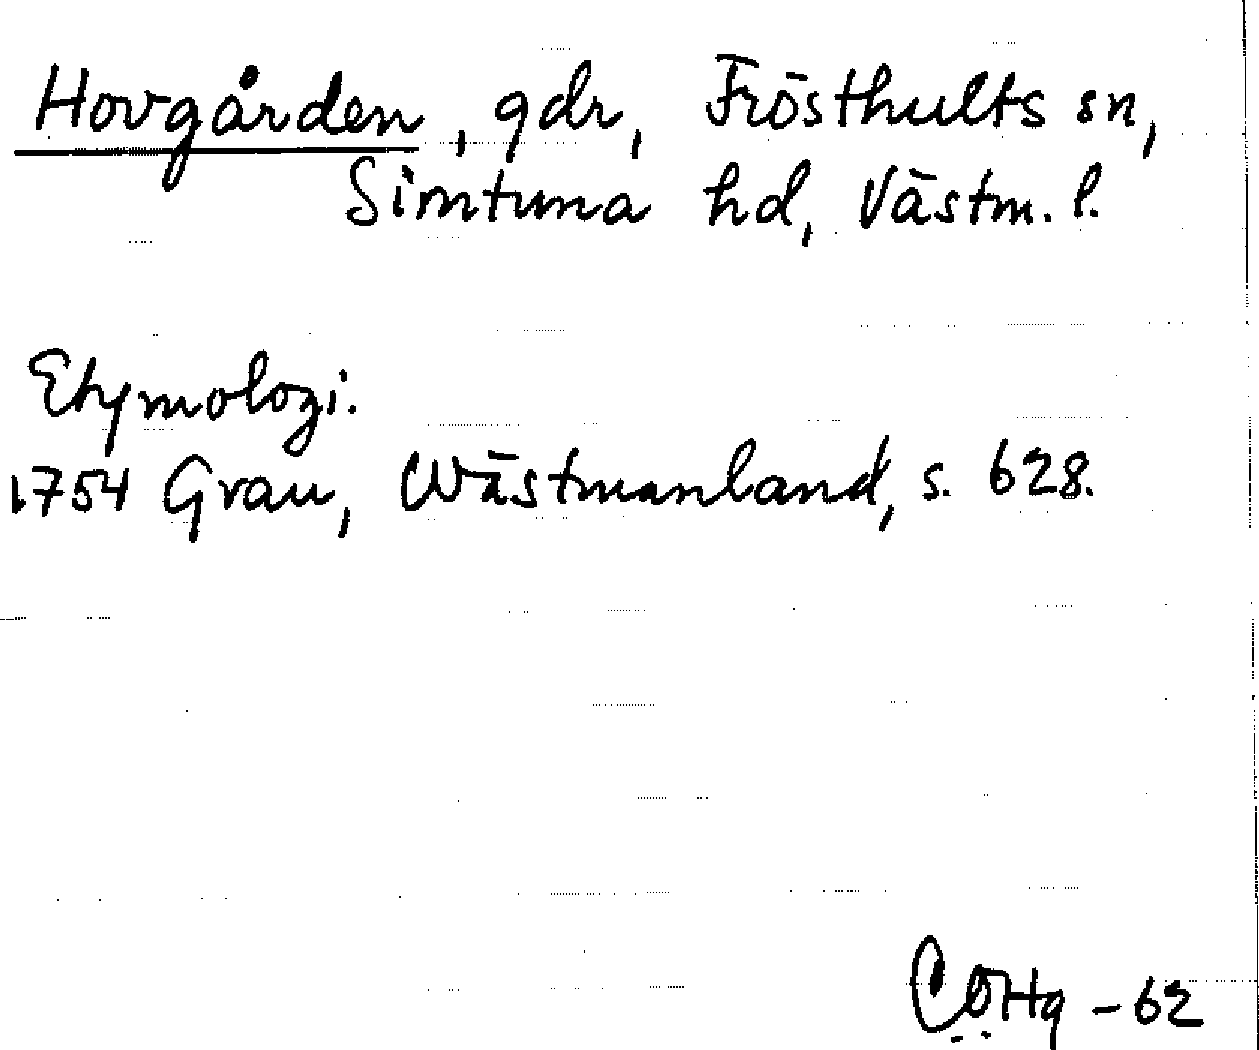 Hovgården, gdr, Frösthults sn,
Simtuna hd, Västm. l.
Etymologi.
1754 Grau, Wästmanland, s. 628.
CÖHg - 62